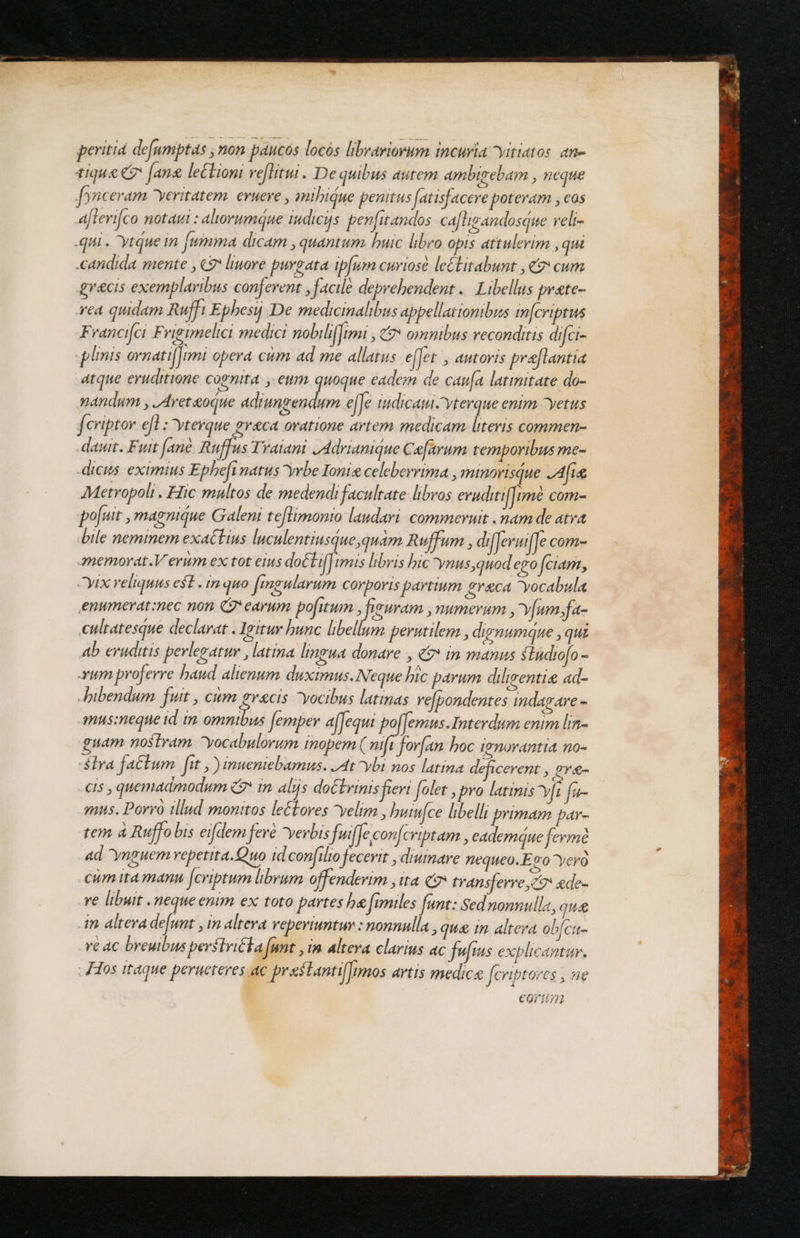 peritia deſumptas, non paucos locos librariorum incuria vitiatos an-
tiquæ & ſanæ lectioni reſtitui. De quibus autem ambigebam, neque
ſynceram veritatem eruere, mihique penitus ſatisfacere poteram, eos
aſteriſco notaui: aliorumque iudicijs penſitandos caſtigandosque reli-
qui. vtque in ſumma dicam, quantum huic libro opis attulerim, qui
candida mente, & liuore purgata ipſum curiosè lectitabunt, & cum
græcis exemplaribus conferent, facilè deprehendent. Libellus præte-
rea quidam Ruffi Ephesij De medicinalibus appellationibus inſcriptus
Franciſci Frigimelici medici nobiliſſimi, & omnibus reconditis diſci-
plinis ornatiſſimi opera cùm ad me allatus eſſet, autoris præſtantia
atque eruditione cognita, eum quoque eadem de cauſa latinitate do-
nandum, Aretæoque adiungendum eſſe iudicaui. vterque enim vetus
ſcriptor eſt: vterque græca oratione artem medicam literis commen-
dauit. Fuit ſanè Ruffus Traiani Adrianique Cæſarum temporibus me-
dicus eximius Epheſi natus vrbe Ioniæ celeberrima, minorisque Aſiæ
Metropoli. Hic multos de medendi facultate libros eruditiſſimè com-
poſuit, magnique Galeni teſtimonio laudari commeruit. nam de atra
bile neminem exactius luculentiusque, quàm Ruffum, diſſeruiſſe com-
memorat. Verùm ex tot eius doctiſſimis libris hic vnus, quod ego ſciam,
vix reliquus est. in quo ſingularum corporis partium græca vocabula
enumerat: nec non & earum poſitum, figuram, numerum, vſum, fa-
cultatesque declarat. Igitur hunc libellum perutilem, dignumque, qui
ab eruditis perlegatur, latina lingua donare, & in manus studioſo-
rum proferre haud alienum duximus. Neque hìc parum diligentiæ ad-
hibendum fuit, cùm græcis vocibus latinas reſpondentes indagare-
mus: neque id in omnibus ſemper aſſequi poſſemus. Interdum enim lin-
guam nostram vocabulorum inopem (niſi forſan hoc ignorantia no-
stra factum ſit,) inueniebamus. At vbi nos latina deficerent, græ-
cis, quemadmodum & in alijs doctrinis fieri ſolet, pro latinis vſi ſu-
mus. Porrò illud monitos lectores velim, huiuſce libelli primam par-
tem à Ruffo bis eiſdem ferè verbis fuiſſe conſcriptam, eademque fermè
ad vnguem repetita. Quo id conſilio fecerit, diuinare nequeo. Ego verò
cùm ita manu ſcriptum librum offenderim, ita & transferre, & æde-
re libuit. neque enim ex toto partes hæ ſimiles ſunt: Sed nonnulla, quæ
in altera deſunt, in altera reperiuntur: nonnulla, quæ in altera obſcu-
rè ac breuibus perstricta ſunt, in altera clarius ac fuſius explicantur.
Hos itaque perueteres ac præstantiſſimos artis medicæ ſcriptores, ne
eorum